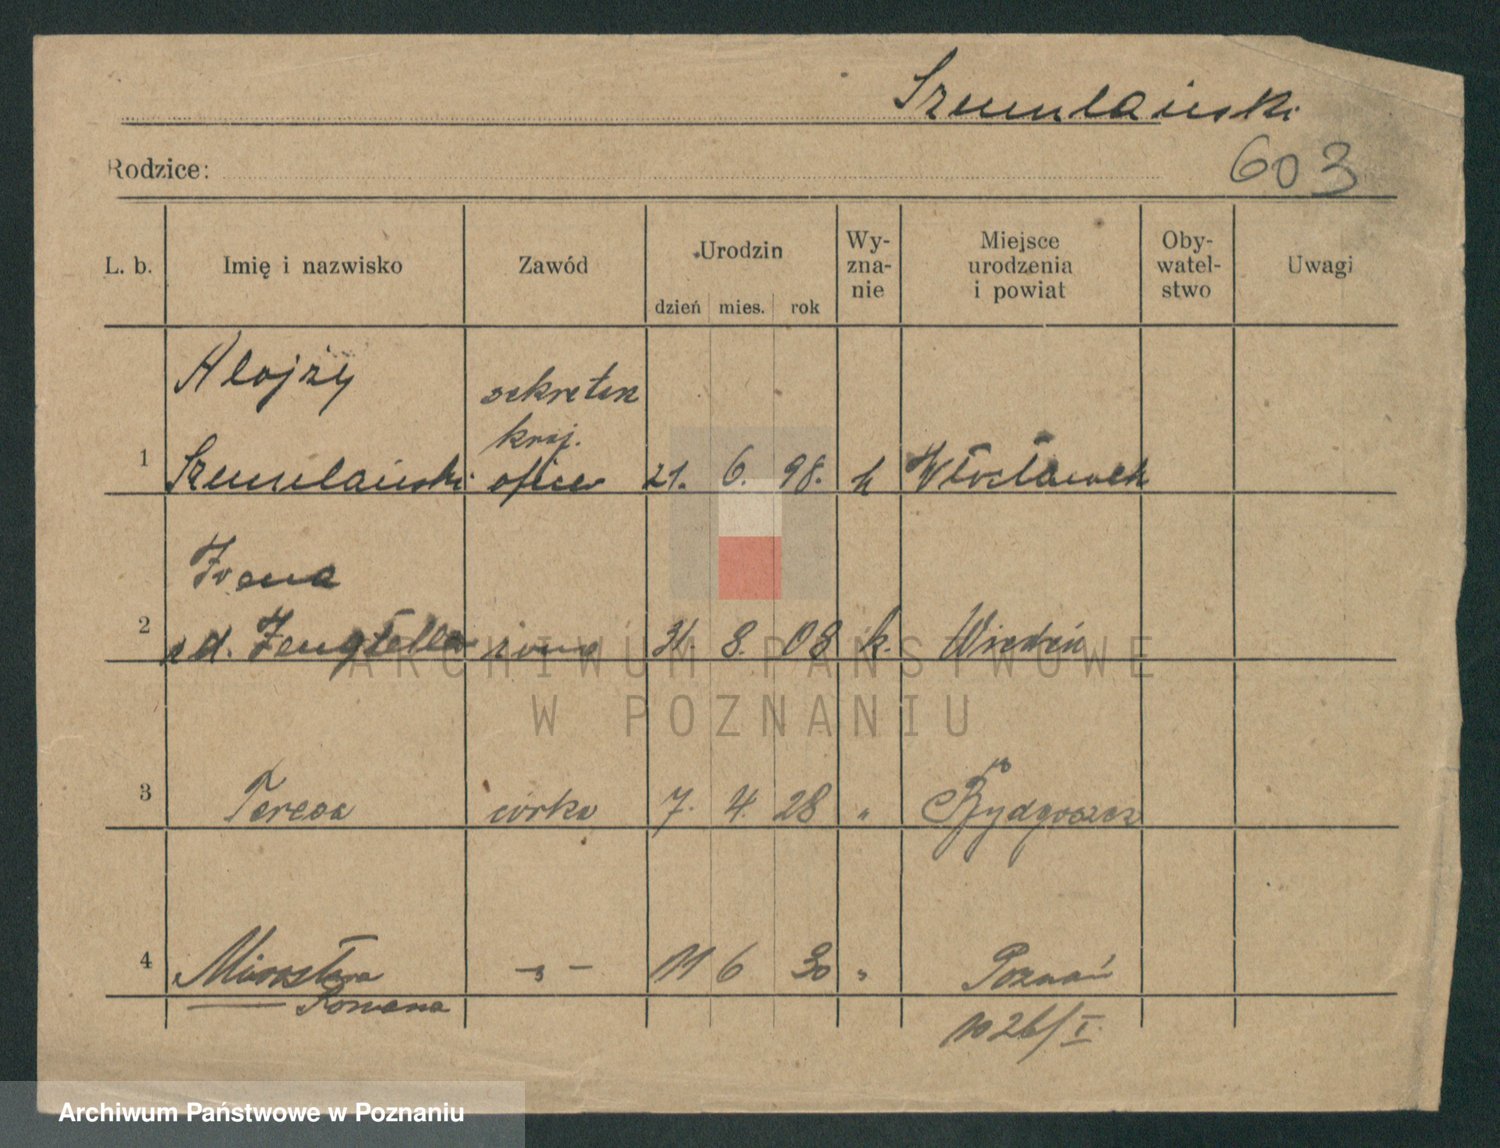 Szumlański
Rodzice:
603
L. b. Imię i nazwisko Zawód Urodzin Wy-zna-nie Miejsce urodzenia i powiat Oby-watel-stwo Uwagi
dzień mies. rok
Alojzy sekretarz
kraj.
1 Szumlański oficer 21. 6. 98. k Włocławek
Irena
2 żona 31. 8. 08 k. Wiedeń
ARCHIWUM PAŃSTWOWE
W POZNANIU
3 Teresa córka 7. 4. 28 " Bydgoszcz
4 Mirosława -"- 11 6 30 " Poznań
Romana
1026/I.
Archiwum Państwowe w Poznaniu